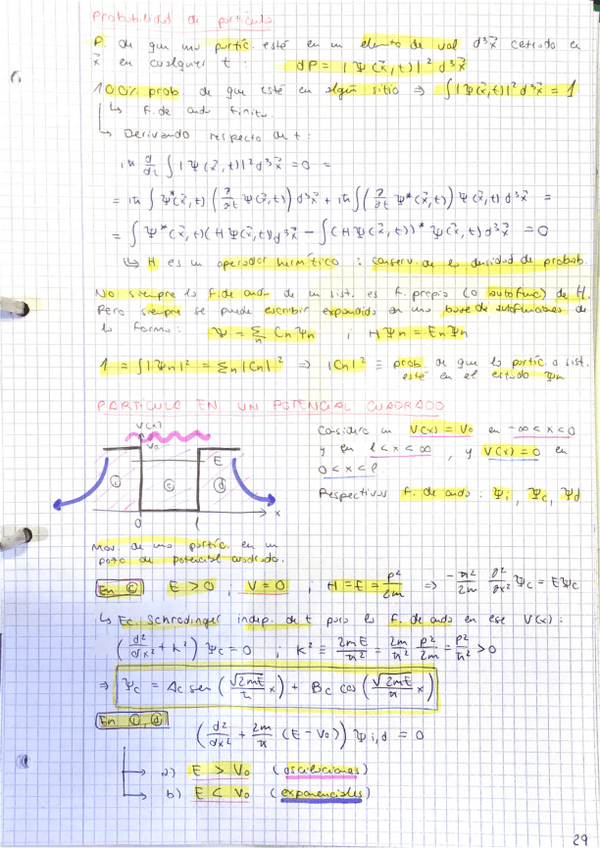 Probabilidad de partícula
P. de que una partíc. esté en un elemento de vol d³x⃗ centrado en
x⃗ en cualquier t : dP = |Ψ(x⃗,t)|² d³x⃗
100% prob. de que esté en algún sitio ⇒ ∫|Ψ(x⃗,t)|² d³x⃗ = 1
↳ F. de onda finita.
↳ Derivando respecto de t :
iħ d/dt ∫|Ψ(x⃗,t)|² d³x⃗ = 0 =
= iħ ∫ Ψ*(x⃗,t) (∂/∂t Ψ(x⃗,t)) d³x⃗ + iħ ∫(∂/∂t Ψ*(x⃗,t)) Ψ(x⃗,t) d³x⃗ =
= ∫ Ψ*(x⃗,t)(HΨ(x⃗,t))d³x⃗ - ∫(HΨ(x⃗,t))* Ψ(x⃗,t) d³x⃗ = 0
↳ H es un operador hermítico : conserv. de la densidad de probab.
No siempre la F. de onda de un sist. es f. propia (o autofunc) de H.
Pero siempre se puede escribir expandida en una base de autofunciones de
la forma: Ψ = Σn Cn Ψn ; HΨn = EnΨn
1 = ∫|Ψn|² = Σn|Cn|² ⇒ |Cn|² ≡ prob. de que la partíc. o sist.
esté en el estado Ψn
PARTÍCULA EN UN POTENCIAL CUADRADO
V(x)
V0
E
i
c
d
0 l x
Considero un V(x) = V0 en -∞<x<0
y en l<x<∞, y V(x)=0 en
0<x<l
Respectivas F. de onda : Ψi, Ψc, Ψd
Mov. de una partíc. en un
pozo de potencial cuadrado.
En c E > 0 , V = 0 ; H = E = p²/2m ⇒ -ħ²/2m ∂²/∂x² Ψc = EΨc
↳ Ec. Schrodinger indep. de t para la F. de onda en ese V(x) :
(d²/dx² + k²) Ψc = 0 ; k² ≡ 2mE/ħ² = 2m/ħ² p²/2m = p²/ħ² > 0
⇒ Ψc = Ac sen (√2mE/ħ x) + Bc cos (√2mE/ħ x)
En i, d
(d²/dx² + 2m/ħ (E - V0)) Ψi,d = 0
a) E > V0 (oscilaciones)
b) E < V0 (exponenciales)
29